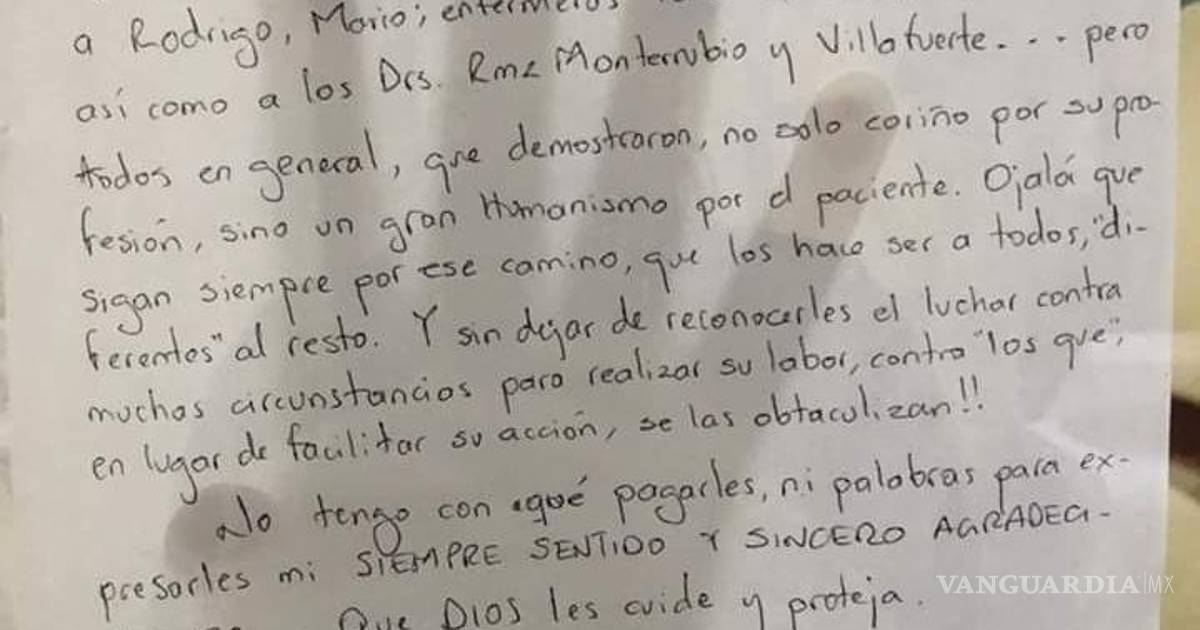 a Rodrigo, Mario; enfermeros
así como a los Drs. Rmz Monterrubio y Villafuerte... pero
todos en general, que demostraron, no solo cariño por su pro-
fesión, sino un gran Humanismo por el paciente. Ojalá que
sigan siempre por ese camino, que los hace ser a todos, "di-
ferentes" al resto. Y sin dejar de reconocerles el luchar contra
muchas circunstancias para realizar su labor, contra "los que",
en lugar de facilitar su acción, se las obtaculizan!!
No tengo con qué pagarles, ni palabras para ex-
presarles mi SIEMPRE SENTIDO Y SINCERO AGRADECI-
Que DIOS les cuide y proteja.
VANGUARDIA|MX